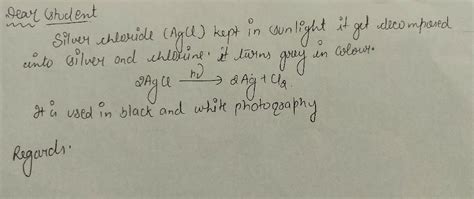 Dear Student
Silver chloride (AgCl) kept in sunlight it get decomposed
into silver and chlorine. it turns grey in colour.
2AgCl —hν→ 2Ag + Cl2
It is used in black and white photography
Regards.